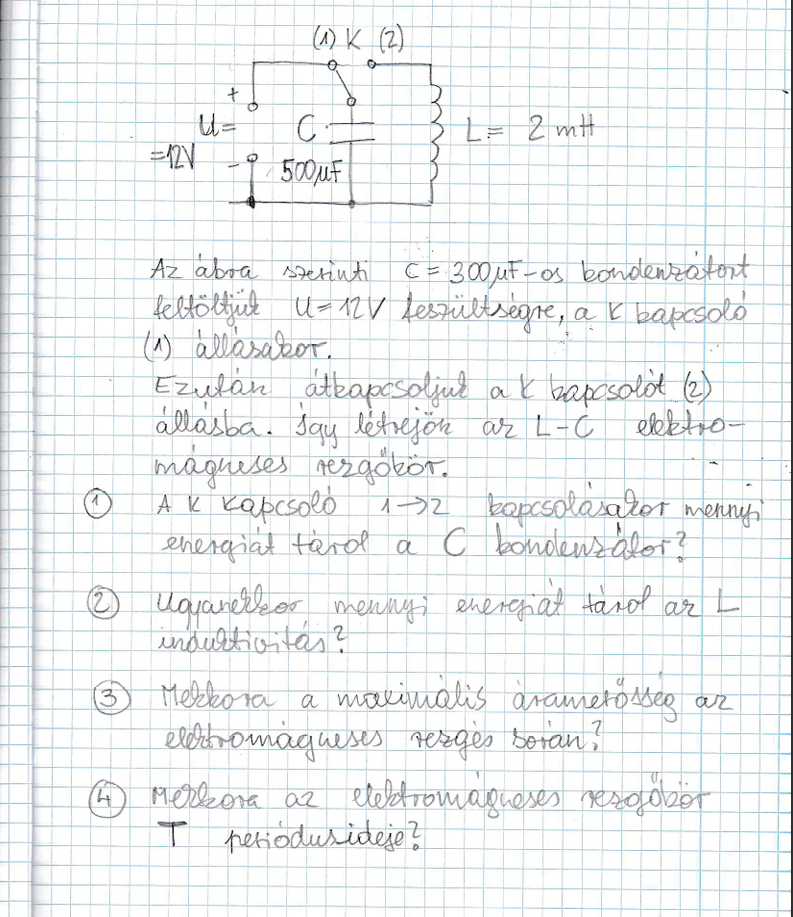 (1) K (2)
+
U=
=12V
-
C
500µF
L= 2 mH
Az ábra szerinti C = 300µF-os kondenzátort
feltöltjük U=12V feszültségre, a K kapcsoló
(1) állásakor.
Ezután átkapcsoljuk a K kapcsolót (2)
állásba. Így létrejön az L-C elektro-
mágneses rezgőkör.
① A K kapcsoló 1→2 kapcsolásakor mennyi
energiát tárol a C kondenzátor?
② Ugyanekkor mennyi energiát tárol az L
induktivitás?
③ Mekkora a maximális áramerősség az
elektromágneses rezgés során?
④ Mekkora az elektromágneses rezgőkör
T periódusideje?